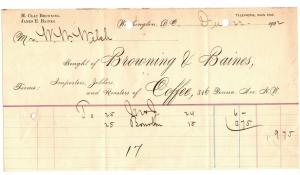 H. CLAY BROWNING.
JAMES E. BAINES.
TELEPHONE, MAIN
Washington, D.C., Dec 22 1902
M W. W. Welsh
Bought of Browning & Baines,
Importers, Jobbers,
Terms: and Roasters of Coffee, 316 Penna. Ave. N.W.
To 25 Java 24 6-
25 Bourbon 15 3 75
9 75
17